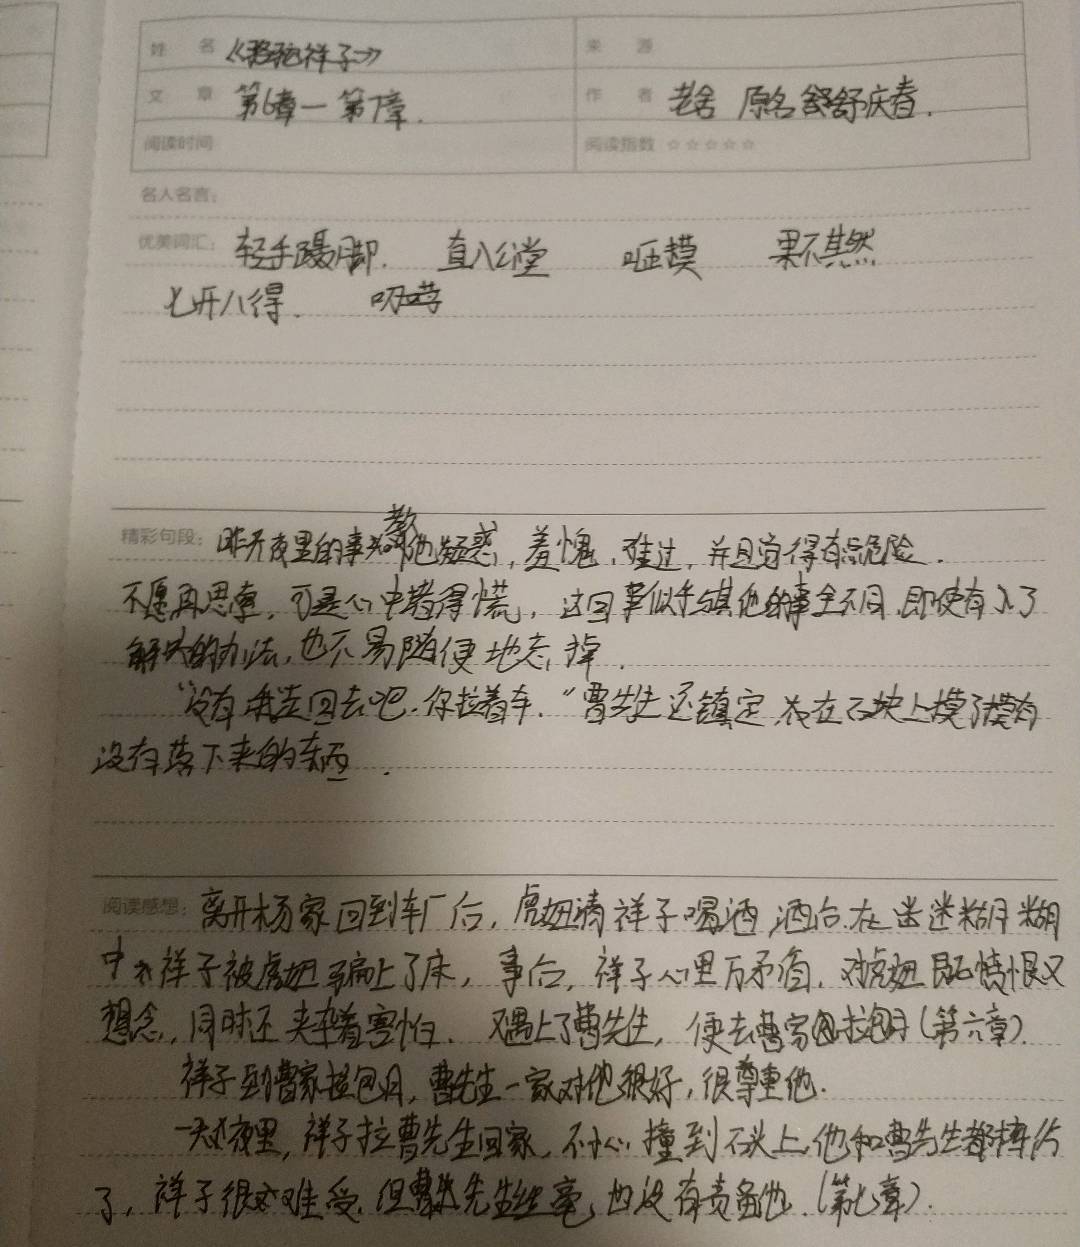 姓 名 《骆驼祥子》 来 源
文 章 第6章一第7章. 作 者 老舍 原名 舒庆春.
阅读时间 阅读指数 ☆☆☆☆☆
名人名言:
优美词汇: 轻手蹑脚. 直入公堂 咂摸 果不其然
七开八得. 叨唠
精彩句段: 昨天夜里的事教他疑惑,羞愧,难过,并且觉得有点危险.
不愿再思索,可是心中堵得慌,这回事似乎与其他的事全不同,即使有了
解决的办法,也不易随便地忘掉.
"没有我走回去吧.你拉着车."曹先生还镇定,在石块上摸了摸有
没有落下来的东西.
阅读感想: 离开杨家回到车厂后,虎妞请祥子喝酒,酒后.在迷迷糊糊
中祥子被虎妞骗上了床,事后,祥子心里万矛盾,对虎妞既愤恨又
想念,同时还夹杂着害怕.又遇上了曹先生,便去曹家拉包月(第六章).
祥子到曹家拉包月,曹先生一家对他很好,很尊重他.
一天夜里,祥子拉曹先生回家,不小心撞到石头上,他和曹先生都摔伤
了,祥子很难受,但曹先生也没有责备他.(第七章).